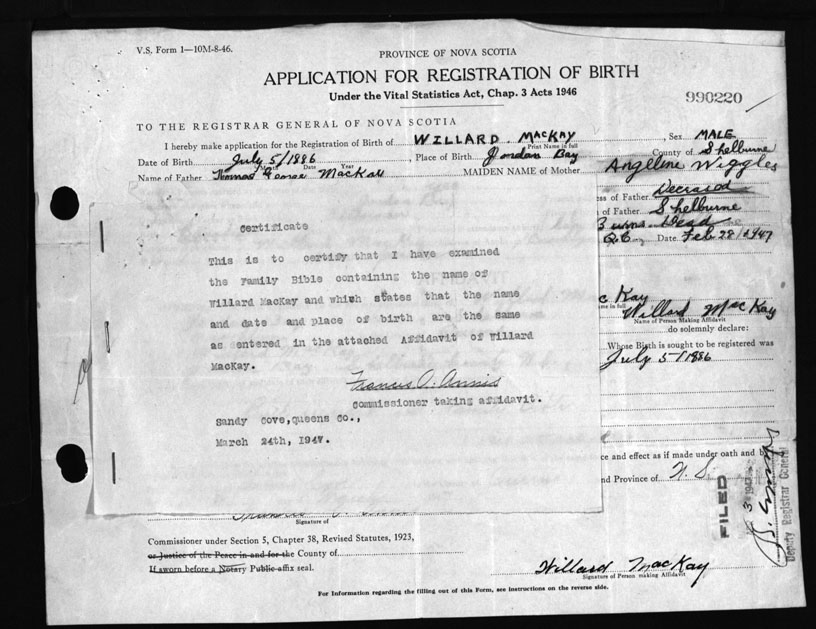 V.S. Form 1—10M-8-46.
PROVINCE OF NOVA SCOTIA
APPLICATION FOR REGISTRATION OF BIRTH
Under the Vital Statistics Act, Chap. 3 Acts 1946
990220
TO THE REGISTRAR GENERAL OF NOVA SCOTIA
I hereby make application for the Registration of Birth of WILLARD MACKAY Sex MALE
Print Name in full
Date of Birth July 5/1886, Place of Birth Jordan Bay County of Shelburne
Month Date Year
Name of Father Thomas George MacKay MAIDEN NAME of Mother Angeline Wiggles
ss of Father Deceased
of Father Shelburne
Dead
Date Feb 28/1947
Certificate
This is to certify that I have examined
the Family Bible containing the name of
Willard MacKay and which states that the name
and date and place of birth are the same
as entered in the attached Affidavit of Willard
MacKay.
Francis O. Annis
Commissioner taking affidavit.
Sandy Cove, queens co.,
March 24th, 1947.
c Kay
me in full
Willard MacKay
Name of Person Making Affidavit
do solemnly declare:
Whose Birth is sought to be registered was
July 5/1886
ce and effect as if made under oath and b
nd Province of N.S.
FILED
Deputy Registrar General
Signature of
Commissioner under Section 5, Chapter 38, Revised Statutes, 1923,
or Justice of the Peace in and for the County of
If sworn before a Notary Public affix seal.
Willard MacKay
Signature of Person making Affidavit
For Information regarding the filling out of this Form, see instructions on the reverse side.